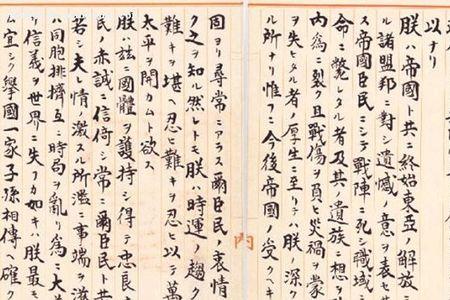 以ナリ
朕ハ帝國ト共ニ終始東亞ノ解放ニ
ル諸盟邦ニ對シ遺憾ノ意ヲ表セサ
ス帝國臣民ニシテ戰陣ニ死シ職域
命ニ斃レタル者及其ノ遺族ニ想ヲ
內為ニ裂ク且戰傷ヲ負ヒ災禍ヲ蒙
ヲ失ヒタル者ノ厚生ニ至リテハ朕ノ深
ル所ナリ惟フニ今後帝國ノ受クヘキ
內
固ヨリ尋常ニアラス爾臣民ノ衷情
ク之ヲ知ル然レトモ朕ハ時運ノ趨ク
難キヲ堪ヘ忍ヒ難キヲ忍ヒ以テ萬
太平ヲ開カムト欲ス
朕ハ茲ニ國體ヲ護持シ得テ忠良
民ノ赤誠ニ信倚シ常ニ爾臣民ト共
若シ夫レ情ノ激スル所濫ニ事端ヲ滋
ハ同胞排擠互ニ時局ヲ亂リ為ニ大
信義ヲ世界ニ失フカ如キハ朕最モ
ム宜シク擧國一家子孫相傳ヘ確ク